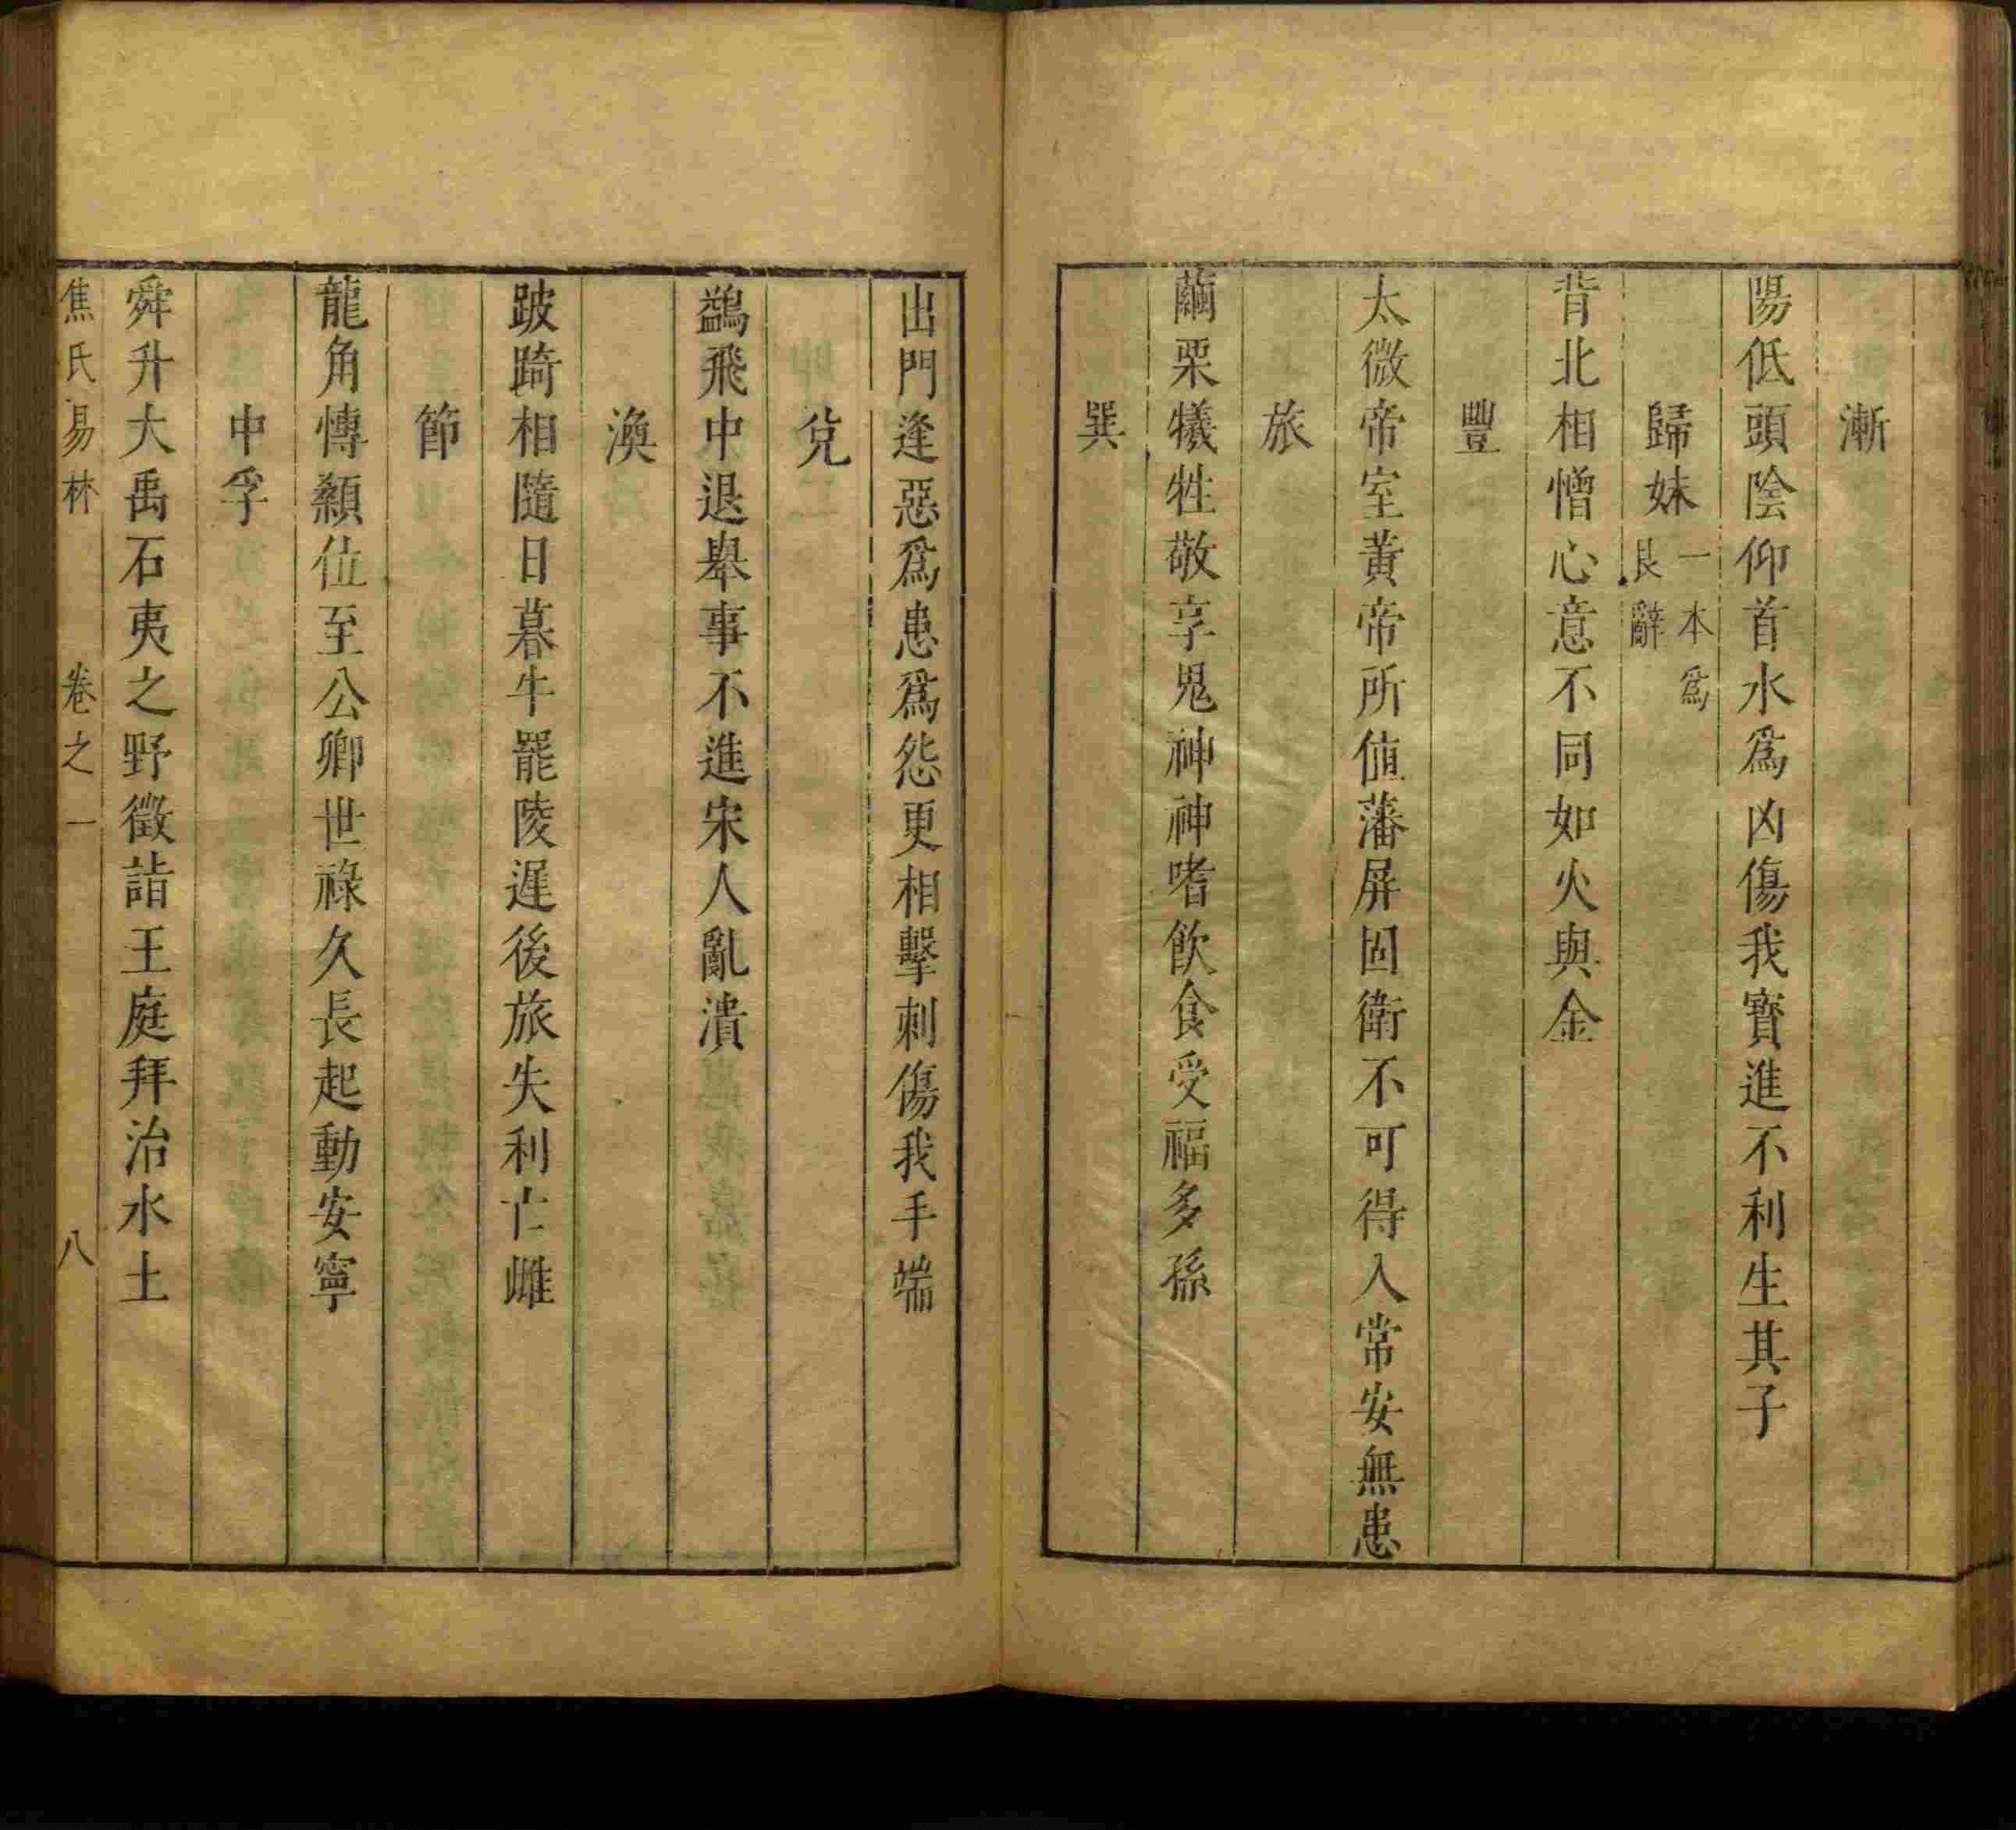 漸
陽低頭陰仰首水爲凶傷我寶進不利生其子
歸妹一本爲艮辭
背北相憎心意不同如火與金
豐
太微帝室黃帝所值藩屏固衛不可得入常安無患
旅
繭栗犧牲敬享鬼神神嗜飲食受福多孫
巽
出門逢惡爲患爲怨更相擊刺傷我手端
兌
鷁飛中退舉事不進宋人亂潰
渙
跛踦相隨日暮牛罷陵遲後旅失利亡雌
節
龍角慱顙位至公卿世祿久長起動安寧
中孚
舜升大禹石夷之野徵詣王庭拜治水土
焦氏易林 卷之一 八